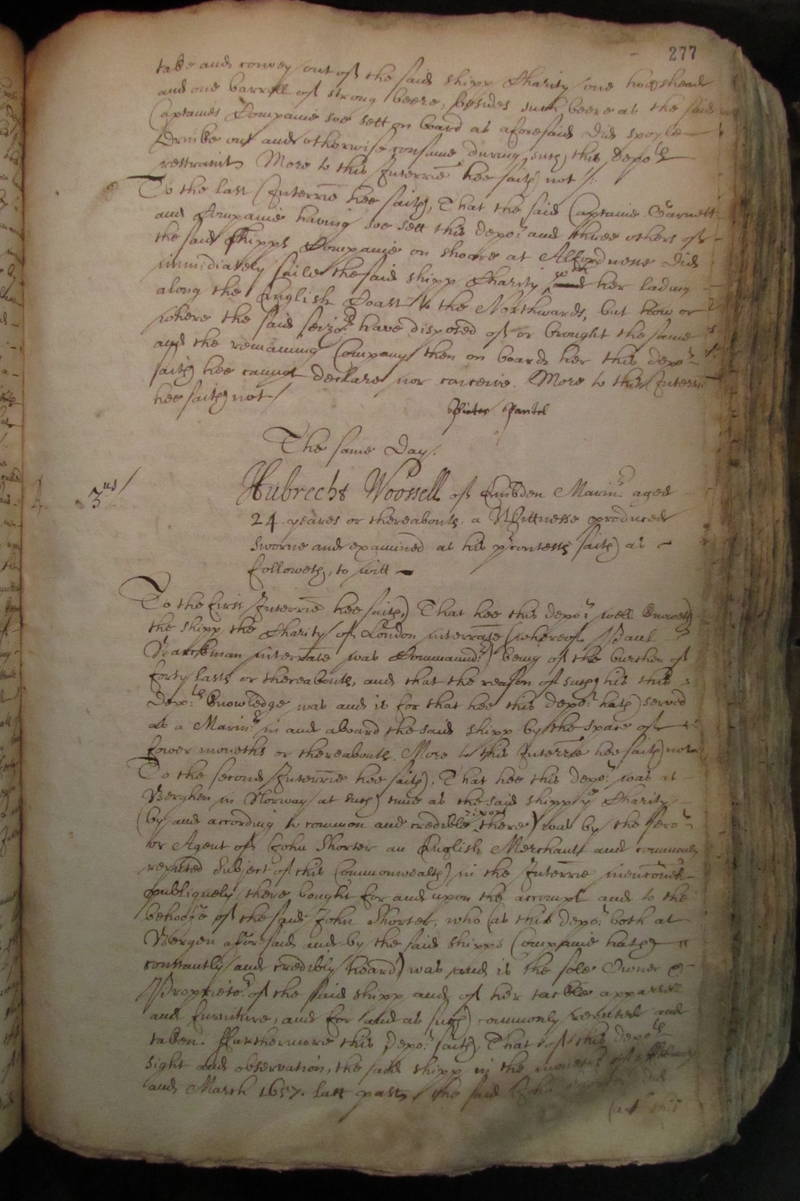 277
take and convey out of the said shipp Charity one hogshead
and one barrell of strong beere, besides such beere as the said
Captaines Companie soe sett on board as aforesaid did spoyle
drinke out and otherwise consume during such this depots
restraint. More to this Interrie hee saith not /.
To the last Interrie hee saith, That the said Captaine Barnett
and Companie having soe sett this depot and three others of
the said shipps Companie on shoare at Alfordnesse did
immediately saile the said shipp Charity with her lading
along the English Coast to the Northwards, but how or
where the said seizors have disposed of or brought the same
and the remaining Company then on board her this depot
saith hee cannot declare nor conceive. More to this Interrie
hee saith not /
Pieter Pantel
The same Day.
3us /
Hubrecht Woossell of Embden Marinr aged
24 yeares or thereabouts a Wittnesse produced
sworne and examined as his precontest saith as
followeth, to witt
To the first Interrie hee saith, That hee this depot well knoweth
the shipp the Charity of London interrate (whereof Paul
interrate was Commandr) being of the burthen of
forty lasts or thereabouts, and that the reason of such his this
depots knowledge was and is for that hee this depot hath served
as a Marinr in and aboard the said shipp by the space of
fower moneths or thereabouts. More to this Interrie hee saith not
To the second Interrie hee saith, That hee this depot was at
Berghen in Norway at such time as the said shipp ye Charity
(by and according to common and credible report there) was by the ffactor
or Agent of John Shorter an English Merchant and commonly
reputed Subject of this Commonwealth in the Interrie mencioned
publiquely there bought for and upon the accompt and to the
behoofe of the said John Shorter, who (as this depot both at
Bergen aforesaid and by the said shipps Companie hath
constantly and credibly heard) was and is the sole Owner &
Proprietor of the said shipp and of her tackle apparell
and furniture, and for and as such commonly reputed and
taken. Furthermore this depot saith, That of this depots
sight and observation, the said shipp in the moneths of
and March 1657. last past, the said John